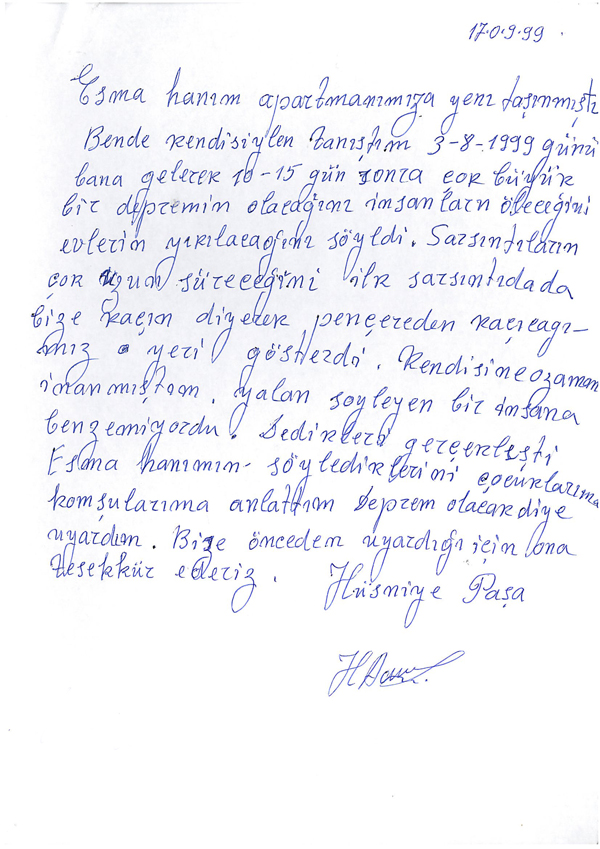 17.0.9.99
Esma hanım apartmanımıza yeni taşınmıştı
Bende kendisiylen tanıştım 3-8-1999 günü
bana gelerek 10-15 gün sonra çok büyük
bir depremin olacağını insanların öleceğini
evlerin yıkılacağını söyldi. Sarsıntıların
çok uzun süreceğini ilk sarsıntıdada
bize kaçın diyerek pençereden kaçıcağı-
mız yeri gösterdi. Kendisine ozaman
inanmıştım. yalan soyleyen bir insana
benzemiyordu. Dedikleri gerçekleşti
Esma hanımın söylediklerini çocuklarıma
komşularıma anlattım Deprem olacak diye
uyardım. Bize önceden uyardığı için ona
teşekkür ederiz. Hüsniye Paşa